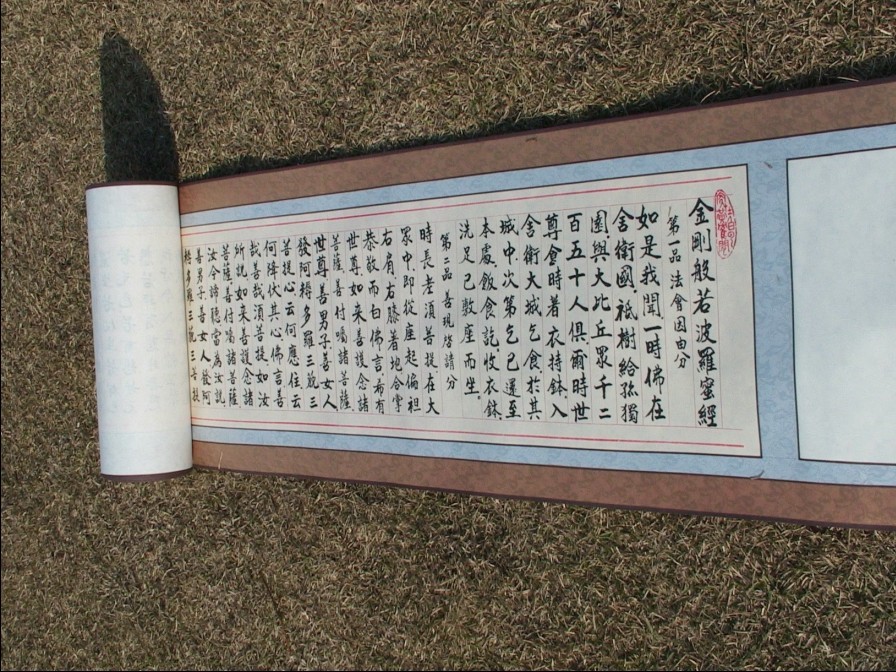 金剛般若波羅蜜經
第一品 法會因由分
如是我聞一時佛在
舍衛國祇樹給孤獨
園與大比丘眾千二
百五十人俱爾時世
尊食時着衣持鉢入
舍衛大城乞食於其
城中次第乞已還至
本處飯食訖收衣鉢
洗足已敷座而坐。
第二品 善現啓請分
時長老須菩提在大
眾中即從座起偏袒
右肩右膝着地合掌
恭敬而白佛言希有
世尊如來善護念諸
菩薩善付囑諸菩薩
世尊善男子善女人
發阿耨多羅三藐三
菩提心云何應住云
何降伏其心佛言善
哉善哉須菩提如汝
所說如來善護念諸
菩薩善付囑諸菩薩
汝今諦聽當為汝說
善男子善女人發阿
耨多羅三藐三菩提